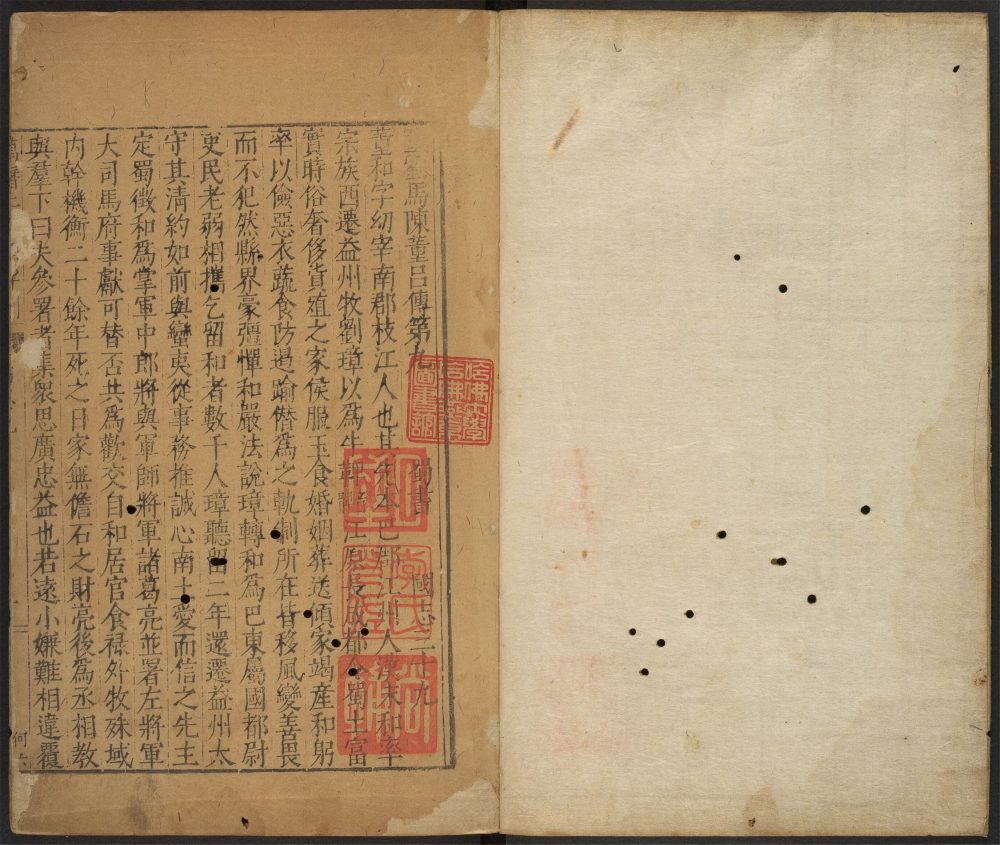 馬陳董呂傳第九 蜀書 國志三十九
董和字幼宰南郡枝江人也其先本巴郡江州人漢末和率
宗族西遷益州牧劉璋以爲牛鞞江原長成都令蜀土富
實時俗奢侈貨殖之家侯服玉食婚姻葬送傾家竭產和躬
率以儉惡衣蔬食防遏踰僭爲之軌制所在皆移風變善畏
而不犯然縣界豪彊憚和嚴法說璋轉和爲巴東屬國都尉
吏民老弱相攜乞留和者數千人璋聽留二年還遷益州太
守其清約如前與蠻夷從事務推誠心南土愛而信之先主
定蜀徵和爲掌軍中郎將與軍師將軍諸葛亮並署左將軍
大司馬府事獻可替否共爲歡交自和居官食祿外牧殊域
內幹機衡二十餘年死之日家無儋石之財亮後爲丞相教
與羣下曰夫參署者集衆思廣忠益也若遠小嫌難相違覆
哈佛大學哈佛燕京圖書館
李氏
何